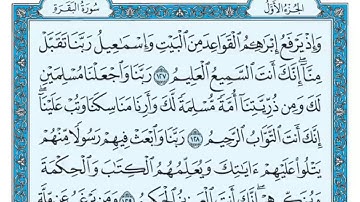 الجزء الأول
سورة البقرة
وَإِذْ يَرْفَعُ إِبْرَٰهِـۧمُ ٱلْقَوَاعِدَ مِنَ ٱلْبَيْتِ وَإِسْمَٰعِيلُ رَبَّنَا تَقَبَّلْ
مِنَّآ ۖ إِنَّكَ أَنتَ ٱلسَّمِيعُ ٱلْعَلِيمُ ١٢٧ رَبَّنَا وَٱجْعَلْنَا مُسْلِمَيْنِ
لَكَ وَمِن ذُرِّيَّتِنَآ أُمَّةً مُّسْلِمَةً لَّكَ وَأَرِنَا مَنَاسِكَنَا وَتُبْ عَلَيْنَآ ۖ
إِنَّكَ أَنتَ ٱلتَّوَّابُ ٱلرَّحِيمُ ١٢٨ رَبَّنَا وَٱبْعَثْ فِيهِمْ رَسُولًا مِّنْهُمْ
يَتْلُوا۟ عَلَيْهِمْ ءَايَٰتِكَ وَيُعَلِّمُهُمُ ٱلْكِتَٰبَ وَٱلْحِكْمَةَ
وَيُزَكِّيهِمْ ۚ إِنَّكَ أَنتَ ٱلْعَزِيزُ ٱلْحَكِيمُ ١٢٩ وَمَن يَرْغَبُ عَن مِّلَّةِ